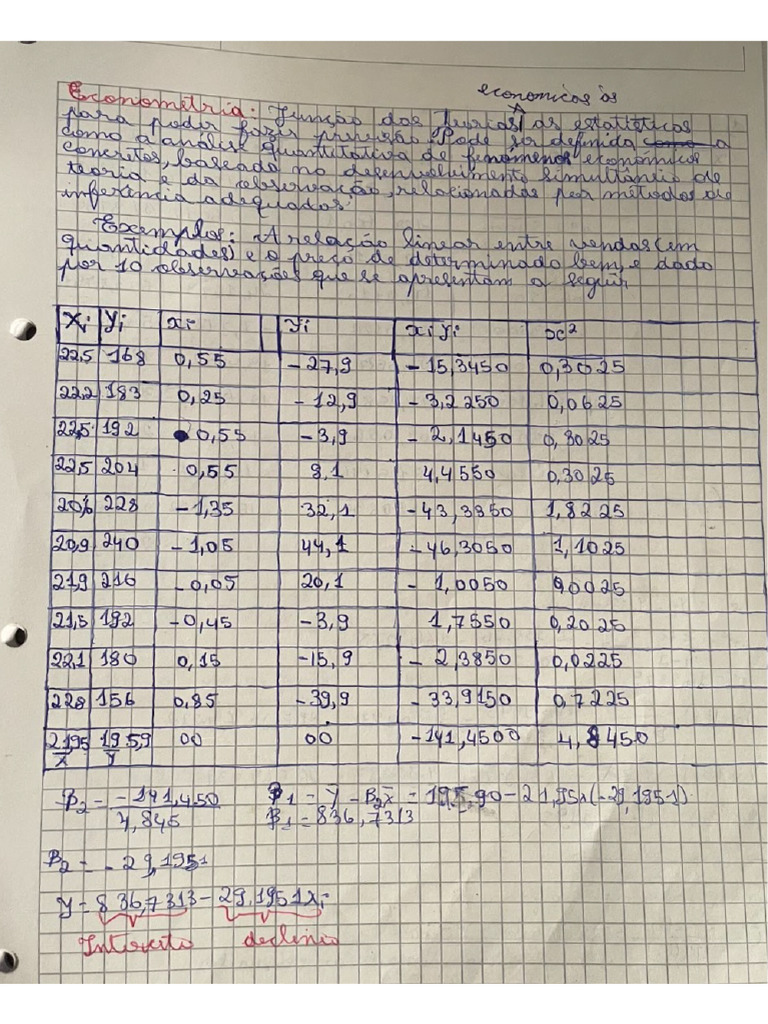 economicos às
Econometria: Junção das Teorias as estatísticas
para poder fazer previsão. Pode ser definida como a
como a análise quantitativa de fenomenos economicos
concritos, baseado no desenvolvimento simultâneo de
teoria e da observação, relacionadas por métodos de
inferência adequados.
Exemplos: A relação linear entre vendas (em
quantidades) e o preço de determinado bem, e dado
por 10 observações que se apresentam a seguir
Xi Yi xi yi xi yi x²
22,5 168 0,55 -27,9 -15,3450 0,3025
22,2 183 0,25 -12,9 -3,2250 0,0625
22,5 192 0,55 -3,9 -2,1450 0,3025
22,5 204 0,55 8,1 4,4550 0,3025
20,6 228 -1,35 32,1 -43,3350 1,8225
20,9 240 -1,05 44,1 -46,3050 1,1025
21,9 216 -0,05 20,1 -1,0050 0,0025
21,5 192 -0,45 -3,9 1,7550 0,2025
22,1 180 0,15 -15,9 -2,3850 0,0225
22,8 156 0,85 -39,9 -33,9150 0,7225
21,95 195,9 00 00 -141,4500 4,8450
X Y
β2 = -141,450 / 4,845 β1 = Y - B2X = 195,90 - 21,95x(-29,1951)
β1 = 836,7313
β2 = -29,1951
Y = 836,7313 - 29,1951Xi
Intercito declinio